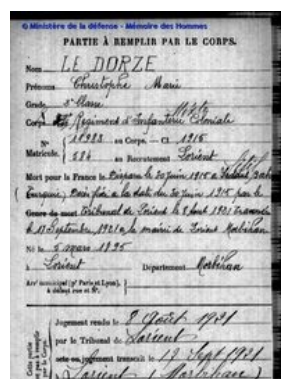 © Ministère de la défense - Mémoire des Hommes
PARTIE À REMPLIR PAR LE CORPS.
Nom LE DORZE
Prénoms Christophe Marie
Grade 2e Classe
Mixte
Corps Régiment d'Infanterie Coloniale
N° 11983 au Corps. — Cl. 1915
Matricule. 584 au Recrutement Lorient
Mort pour la France le Disparu le 30 juin 1915 à
(Turquie) Décès fixé à la date du 30 juin 1915 par le
Genre de mort Tribunal de Lorient le 8 Août 1921, transcrit
le 12 Septembre 1921 à la mairie de Lorient Morbihan
Né le 5 mars 1895
à Lorient Département Morbihan
Arrt municipal (pr Paris et Lyon),
à défaut rue et N°.
Cette partie
n'est pas à remplir
par le Corps.
Jugement rendu le 8 Août 1921
par le Tribunal de Lorient
acte ou jugement transcrit le 12 Sept 1921
à Lorient (Morbihan)